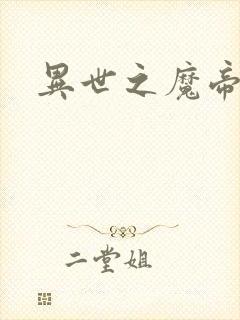 異世之魔帝
二堂姐